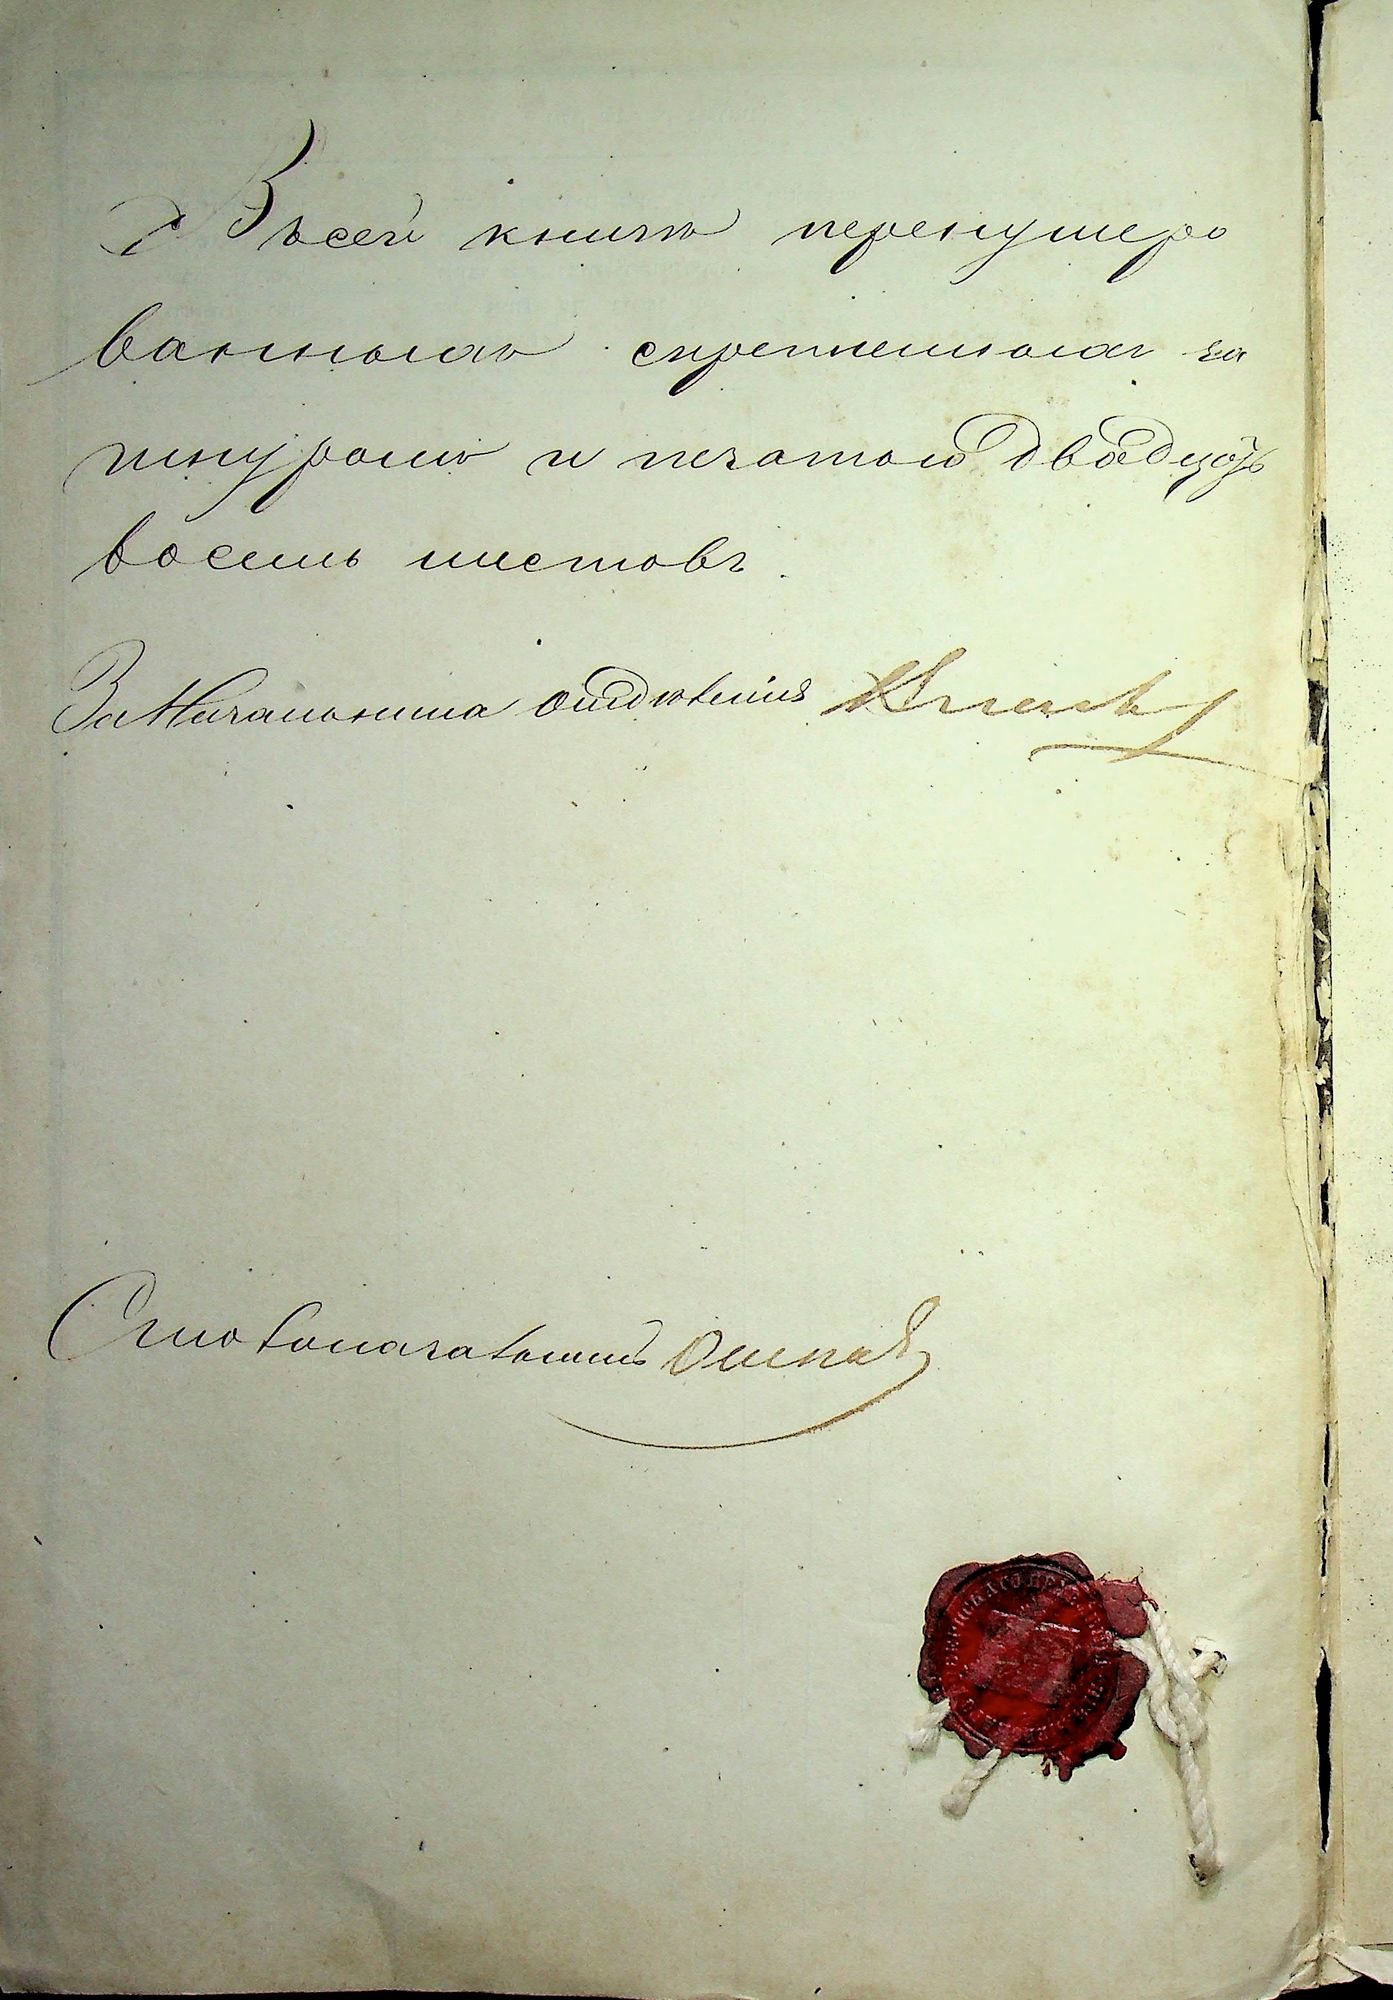 Въ сей книгѣ перенумеро
ванныхъ скрѣпленныхъ за
шнуромъ и печатью двадцать
восемь листовъ.
За Начальника отдѣленія
Столоначальникъ